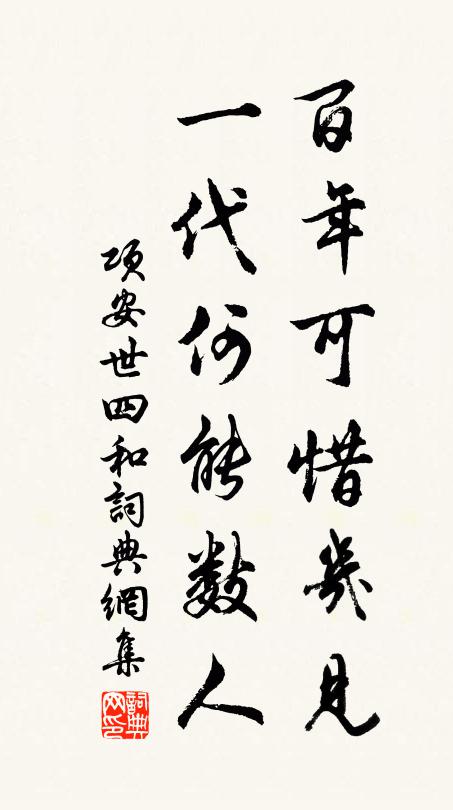 百年可惜幾見
一代何能数人
項安世四和詞典網集
詞典网印